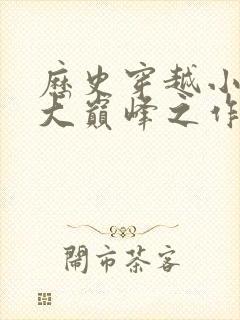 歷史穿越小
大巔峰之作
鬧市茶客